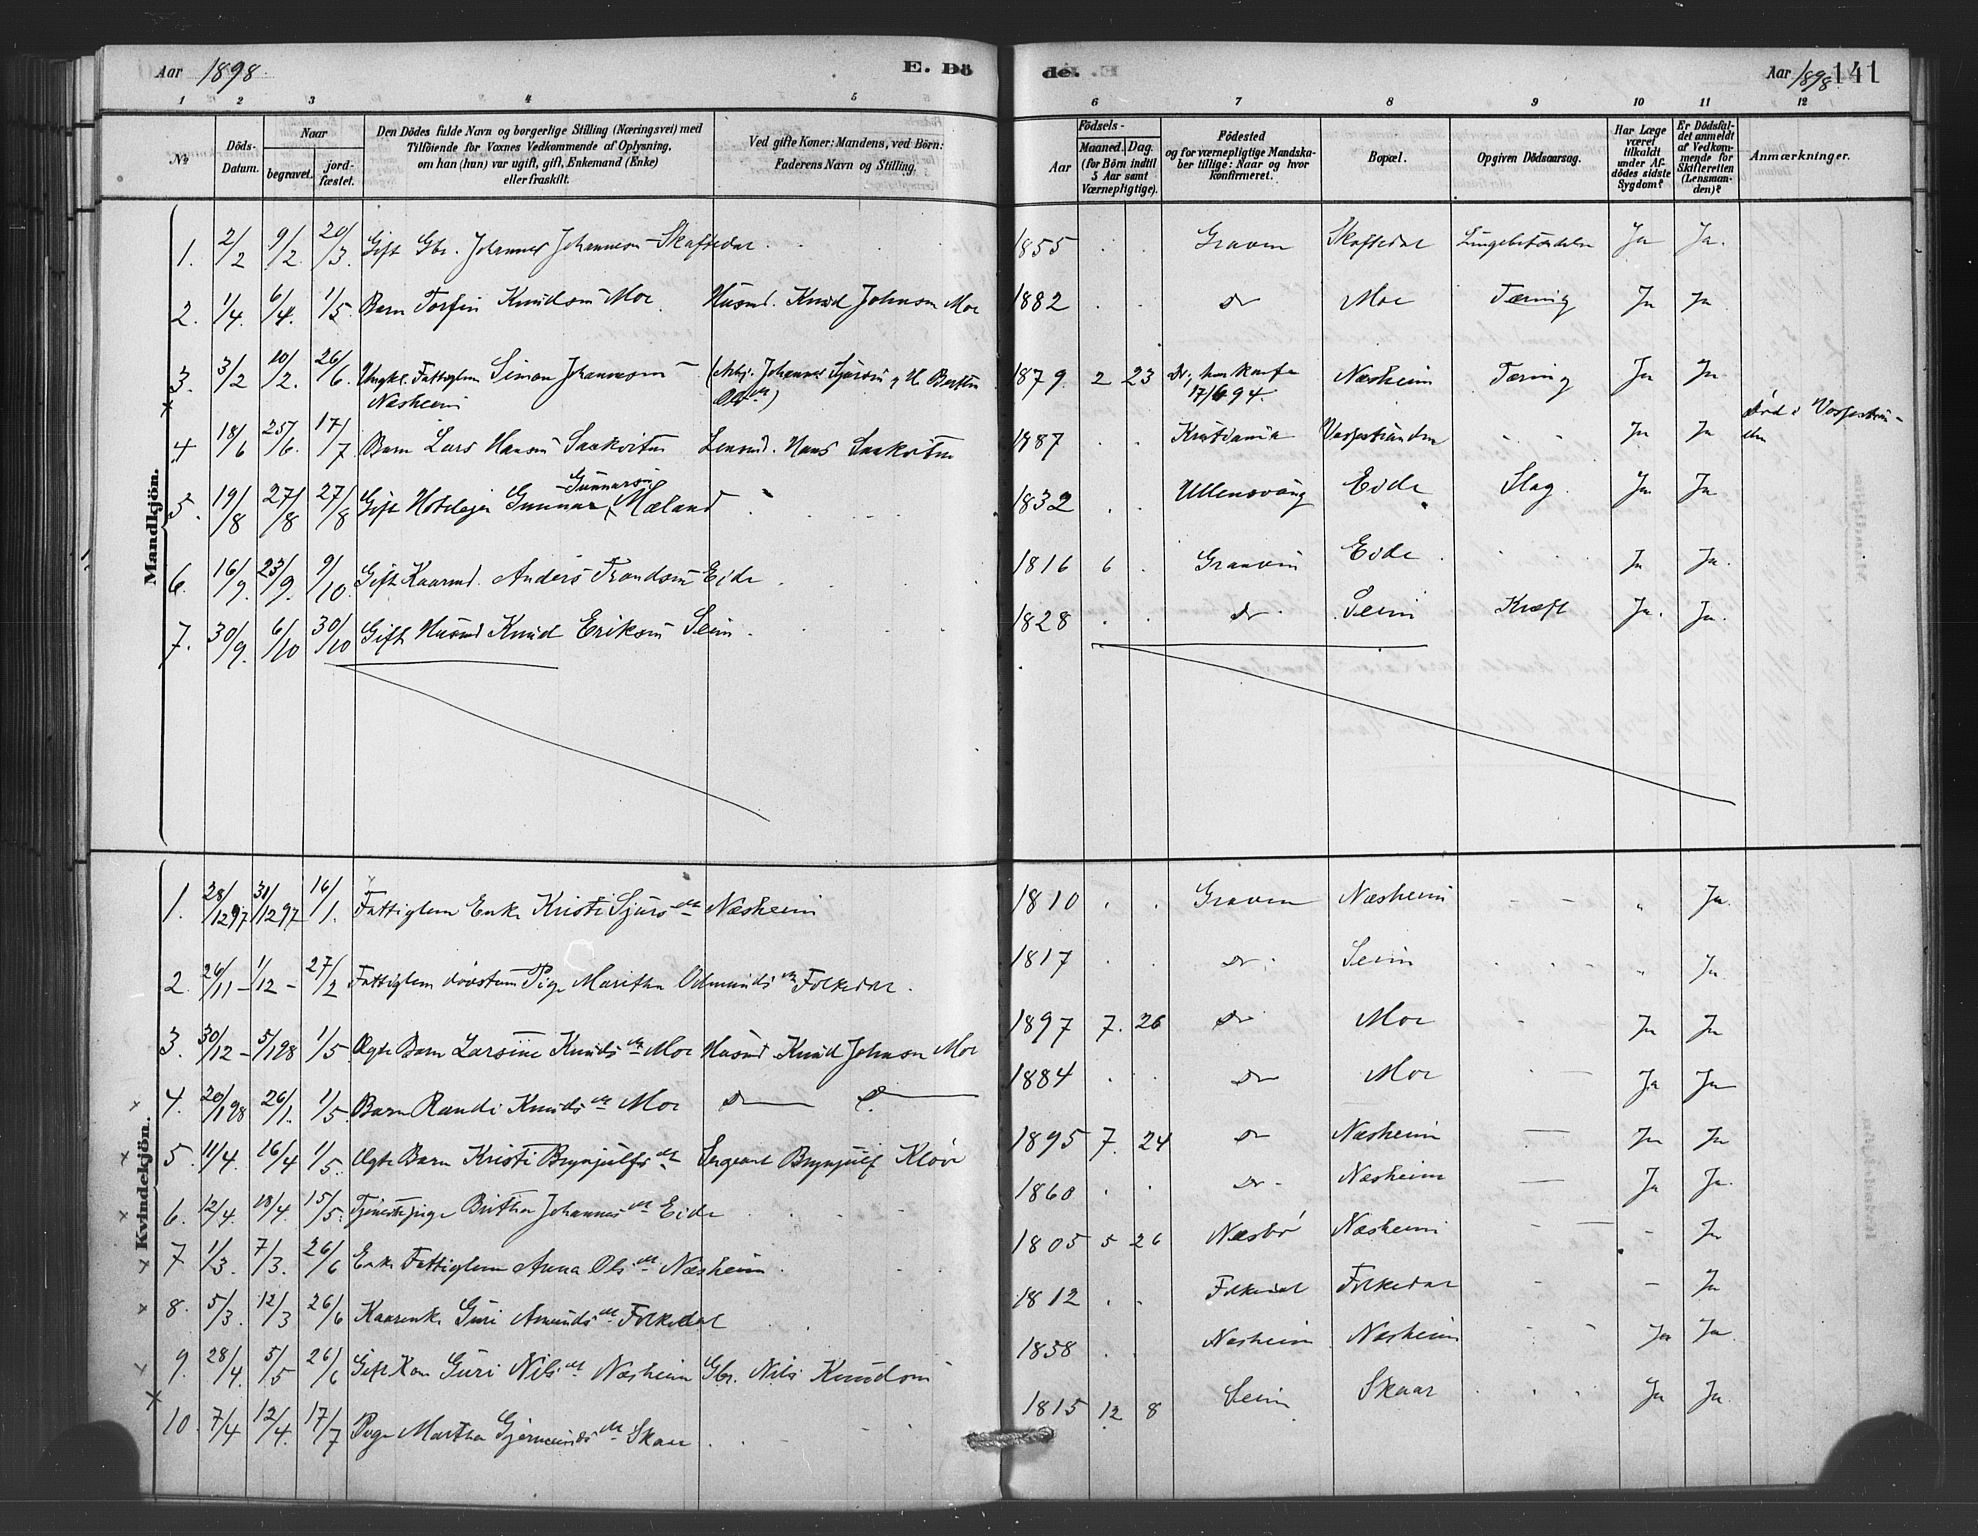 Aar 1898. E. Dö
de. Aar 1898. 141
1 2 3 4 5
6 7 8 9 10 11 12
No
Döds-Datum.
Naar
begravet.
jord-fæstet.
Den Dödes fulde Navn og borgerlige Stilling (Næringsvei) med
Tilföiende for Voxnes Vedkommende af Oplysning,
om han (hun) var ugift, gift, Enkemand (Enke)
eller fraskilt.
Ved gifte Koner: Mandens, ved Börn:
Faderens Navn og Stilling.
Födsels-
Aar
Maaned. Dag.
(for Börn indtil
5 Aar samt
Værnepligtige).
Födested
og for værnepligtige Mandska-
ber tillige: Naar og hvor
konfirmeret.
Bopæl.
Opgiven Dödsaarsag.
Har Læge
været
tilkaldt
under Af-
dödes sidste
Sygdom?
Er Dödsfal-
det anmeldt
af Vedkom-
mende for
Skifteretten
(Lensman-
den)?
Anmærkninger.
Mandkjön.
1. 2/2 9/2 20/3. Gift Gbr. Johannes Johannesen Skaftedal 1855 Graven Skaftedal Lungebetændelse Ja Ja.
2. 1/4. 6/4. 1/5 Barn Torfin Knudsen Moe Husmd. Knud Johnson Moe 1882 Do Moe Tæring Ja Ja
3. 3/2 10/2. 26/6. Ungk. Fattiglem Simon Johannesen (Arbj. Johannes Sjursen 1879 2 23 Do, 17/6 94. Næsheim Tæring Ja Ja
Næsheim
4 18/6 25/6. 17/7 Barn Lars Hansen Saakvitne Lensmd. Hans Saakvitne 1887 Kristiania Vossestranden Ja Ja Död i Vossestran-
den
Gunnarsen
5. 19/8 27/8 27/8 Gift Hoteleier Gunnar Mæland 1832 Ullensvang Eide Slag. Ja Ja
6. 16/9. 23/9. 9/10. Gift Kaarmd. Anders Trondsen Eide 1816 6 Graven Eide Ja Ja.
7. 30/9. 6/10 30/10 Gift Husmd Knud Eriksen Seim 1828 Do Seim Kræft Ja. Ja.
Kvindekjön.
1. 28/12 97 31/12 97 16/1. Fattiglem Enke Kristi Sjursdtr Næsheim 1810 Graven Næsheim " Ja.
2. 26/11 - 1/12 - 27/2 Fattiglem dövstum Pige Maritha Odmundsdtr Folkedal. 1817 Do. Seim " Ja.
3. 30/12 - 5/1 98 1/5 Ægte Barn Larsine Knudsdtr Moe Husmd Knud Johnson Moe 1897 7. 26 Do Moe Ja Ja
4. 20/1 98 26/1. 1/5. Barn Randi Knudsdtr Moe Do Do 1884 Do Moe Ja Ja
5. 11/4. 16/4 1/5. Ægte Barn Kristi Brynjulfsdtr Sergeant Brynjulf Klöve 1895 7. 24 Do Næsheim Ja Ja
6. 12/4. 18/4. 15/5. Tjenestepige Britha Johannesdtr Eide 1860 Do Næsheim Ja Ja.
7 1/3. 7/3. 26/6 Enke Fattiglem Anna Olsdtr Næsheim 1805 5 26 Næsbö Næsheim Ja
8. 5/3. 12/3 26/6 Kaarenke Guri Amundsdtr Folkedal 1812 Folkedal Folkedal Ja
9. 28/4. 5/5 26/6 Gift Kone Guri Nilsdtr Næsheim Gbr. Nils Knudsen 1858 Næsheim Næsheim Ja Ja.
10. 7/4 12/4. 17/7 Pige Martha Gjermundsdtr Skaar 1815 12 8 Seim Skaar Ja Ja.